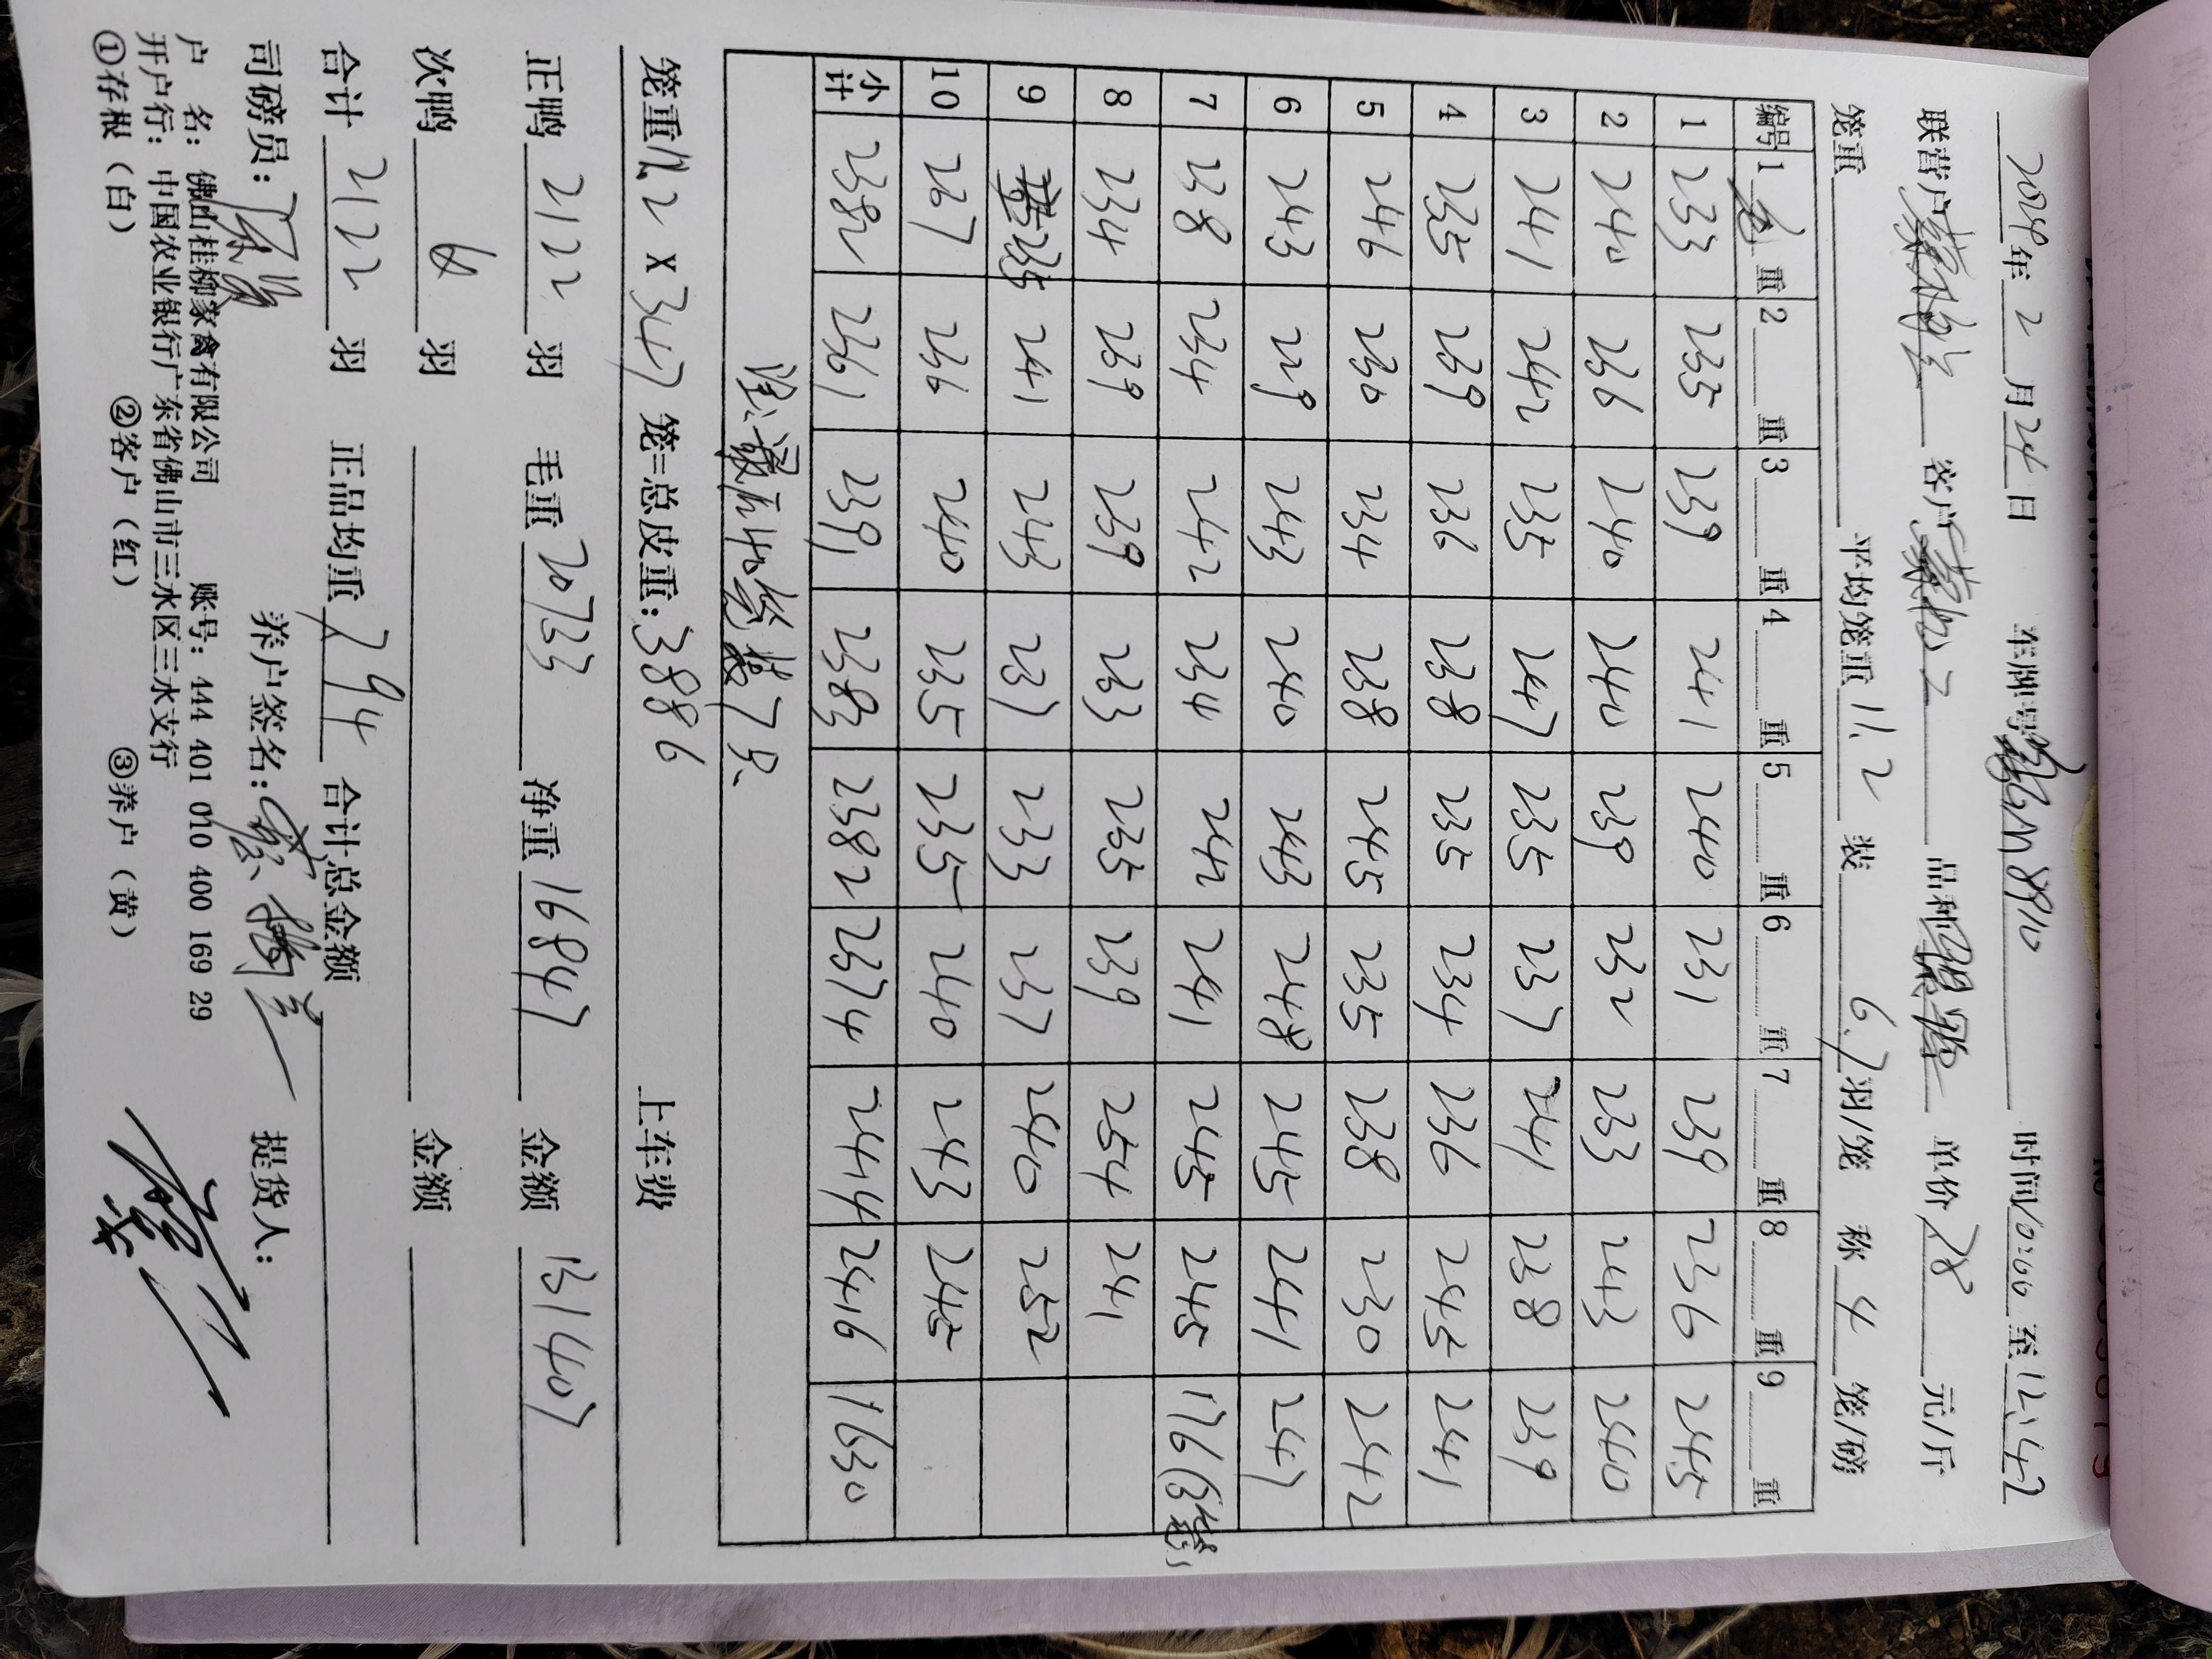 2024年2月24日 车牌号 M8910 时间10:00至12:42
联营户 客户 品种 单价7.8元/斤
笼重 平均笼重11.2 装6.7羽/笼 称4笼/磅
编号 1毛重 2 重 3 重 4 重 5 重 6 重 7 重 8 重 9 重
1 233 235 239 241 240 231 239 236 245
2 240 236 240 240 239 232 233 243 240
3 241 242 235 247 235 237 241 238 239
4 235 239 236 238 235 234 236 245 241
5 246 230 234 238 245 235 238 230 242
6 243 229 243 240 243 248 245 241 247
7 238 234 242 234 242 241 245 245 176(3笼)
8 234 239 239 233 235 239 254 241
9 235 241 243 237 233 237 240 252
10 237 236 240 235 235 240 243 245
小计 2382 2361 2391 2383 2382 2374 2414 2416 1630
注:最后一笼装7只
笼重11.2×347笼=总皮重:3886 上车费
正鸭2122羽 毛重20733 净重16847 金额131407
次鸭 羽 金额
合计2122羽 正品均重7.94 合计总金额
司磅员: 养户签名: 提货人:
户 名:佛山桂柳家禽有限公司 账号:444 401 010 400 169 29
开户行:中国农业银行广东省佛山市三水区三水支行
①存根(白) ②客户(红) ③养户(黄)